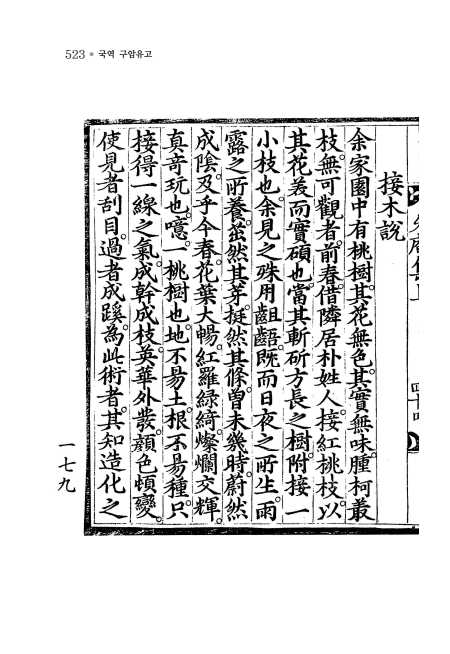 523 • 국역 구암유고
接木說
余家園中有桃樹。其花無色。其實無味。腫柯叢
枝。無可觀者。前春。借隣居朴姓人。接紅桃枝。以
其花美而實碩也。當其斬斫方長之樹。附接一
小枝也。余見之。殊用齟齬。旣而日夜之所生。雨
露之所養。茁然其芽。挺然其修。曾未幾時。蔚然
成陰。及乎今春。花葉大暢。紅羅綠綺。燦爛交輝。
真奇玩也。噫。一桃樹也。地不易土。根不易種。只
接得一線之氣。成幹成枝。英華外發。顔色頓變。
使見者刮目。過者成蹊。爲此術者。其知造化之
一七九